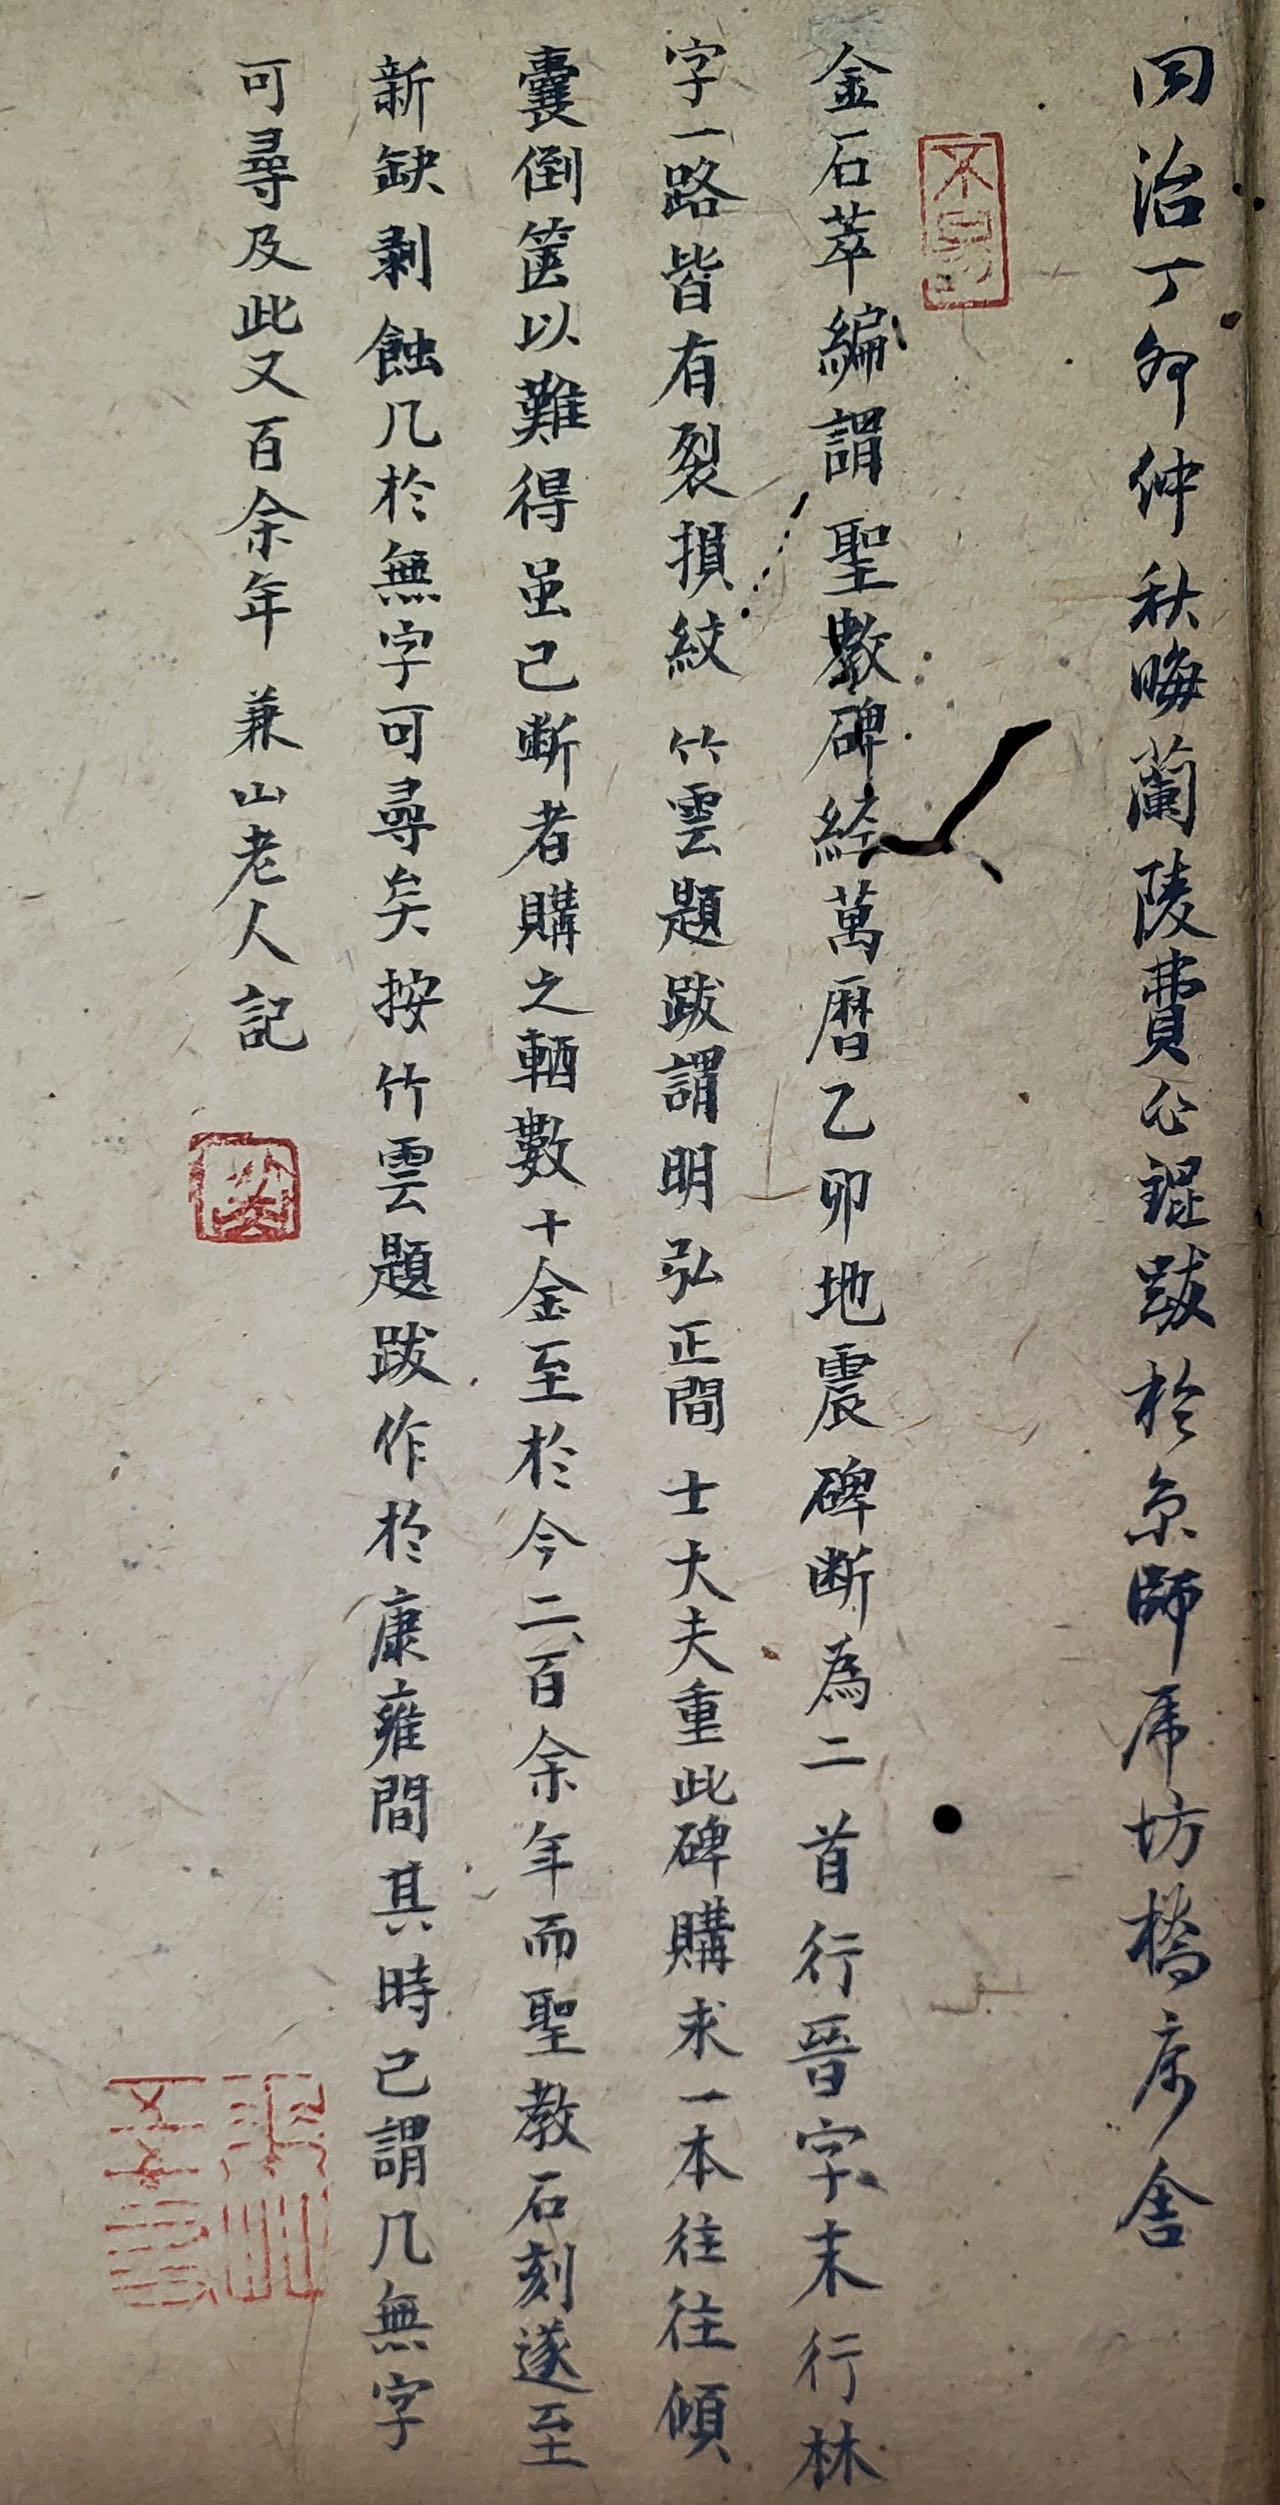 同治丁卯仲秋晦蘭陵費心錕跋於京師虎坊橋寓舍
金石萃編謂聖教碑經萬曆乙卯地震碑断為二首行晉字末行林
字一路皆有裂損紋竹雲題跋謂明弘正間士大夫重此碑購求一本往往傾
囊倒篋以難得虽已断者購之輒數十金至於今二百余年而聖教石刻遂至
新缺剥蝕几於無字可尋矣按竹雲題跋作於康雍間其時已謂几無字
可尋及此又百余年 兼山老人記